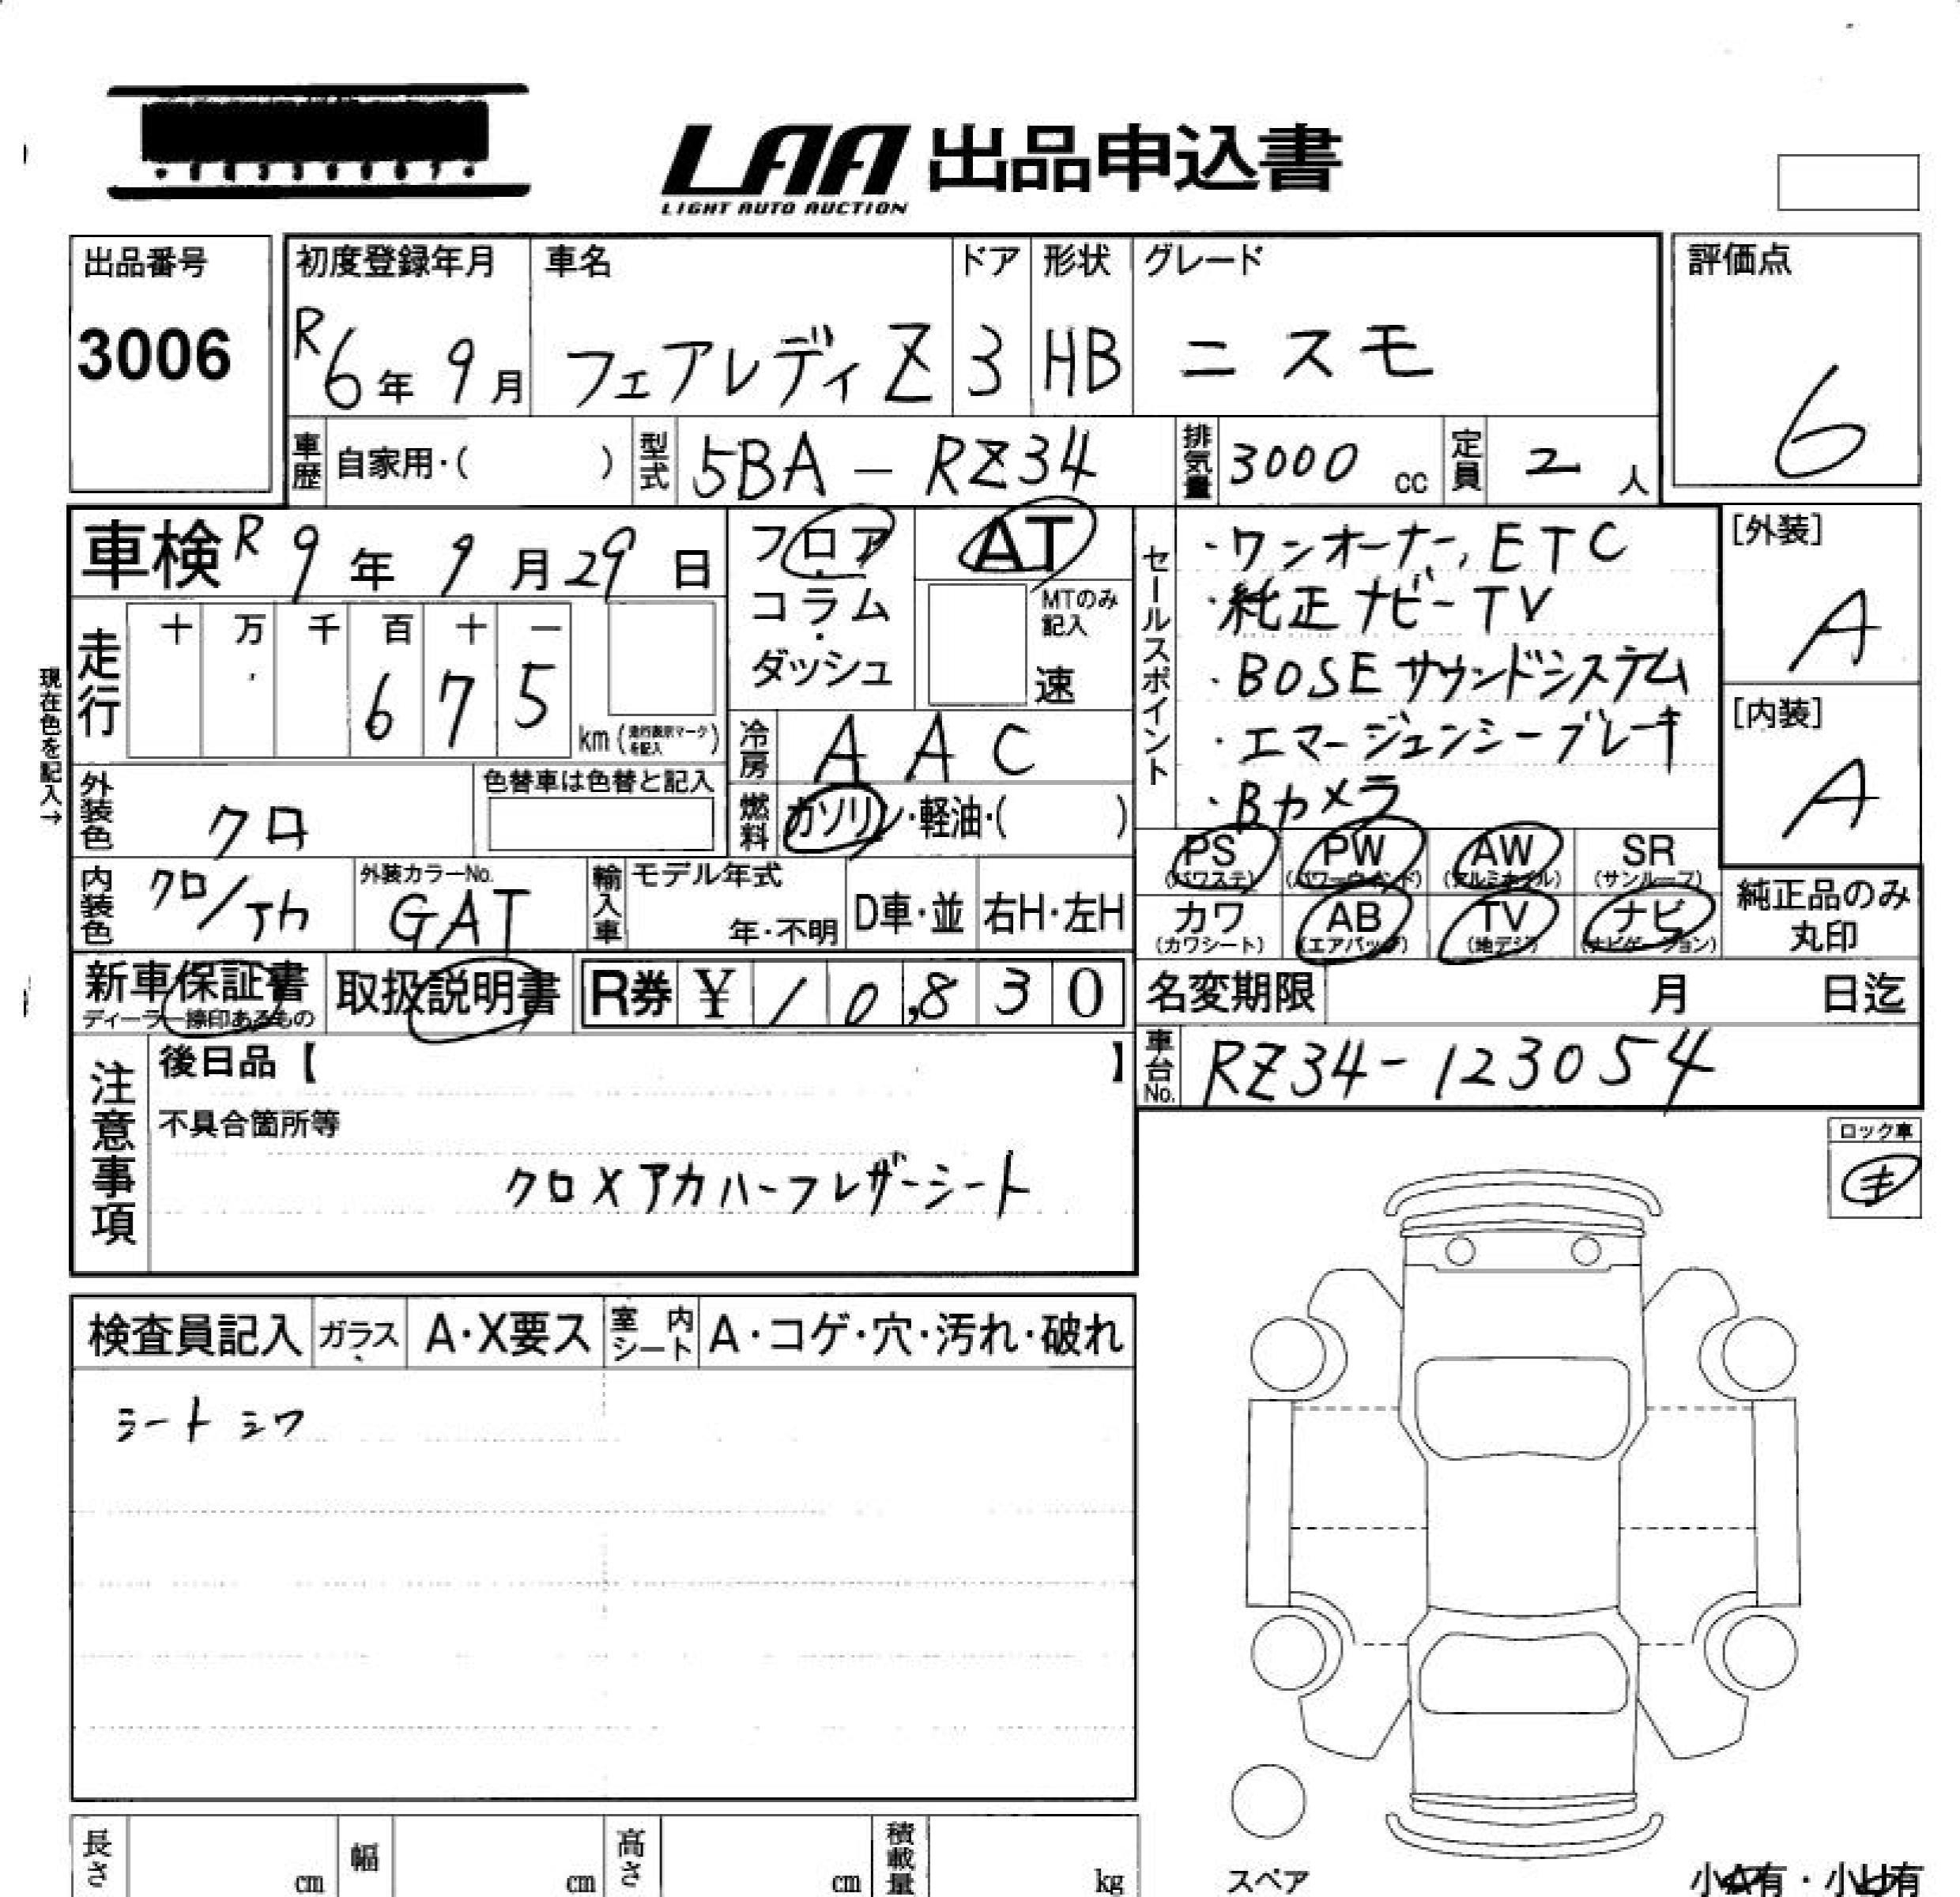 LAA 出品申込書
LIGHT AUTO AUCTION
出品番号
3006
初度登録年月
R6年9月
車名
フェアレディZ
ドア
3
形状
HB
グレード
ニスモ
評価点
6
車歴 自家用・( )
型式 5BA-RZ34
排気量 3000 cc
定員 2 人
車検 R9年9月29日
フロア・コラム・ダッシュ
AT
MTのみ記入
速
セールスポイント
・ワンオーナー, ETC
・純正ナビーTV
・BOSEサウンドシステム
・エマージェンシーブレーキ
・Bカメラ
[外装]
A
[内装]
A
現在色を記入→
走行
十 万 千 百 十 一
6 7 5
km (走行表示マークを記入)
冷房 AAC
外装色 クロ
色替車は色替と記入
燃料 ガソリン・軽油・( )
PS (パワステ)
PW (パワーウインド)
AW (アルミホイル)
SR (サンルーフ)
カワ (カワシート)
AB (エアバッグ)
TV (地デジ)
ナビ (ナビゲーション)
純正品のみ丸印
内装色 クロ/アカ
外装カラーNo.
GAT
輸入車
モデル年式
年・不明
D車・並
右H・左H
新車保証書
ディーラー捺印あるもの
取扱説明書
R券 ¥10,830
名変期限 月 日迄
車台No. RZ34-123054
注意事項
後日品【 】
不具合箇所等
クロXアカハーフレザーシート
ロック車
検査員記入
ガラス A・X要ス
室内シート A・コゲ・穴・汚れ・破れ
シートシワ
長さ cm
幅 cm
高さ cm
積載量 kg
スペア
小A有・小U有